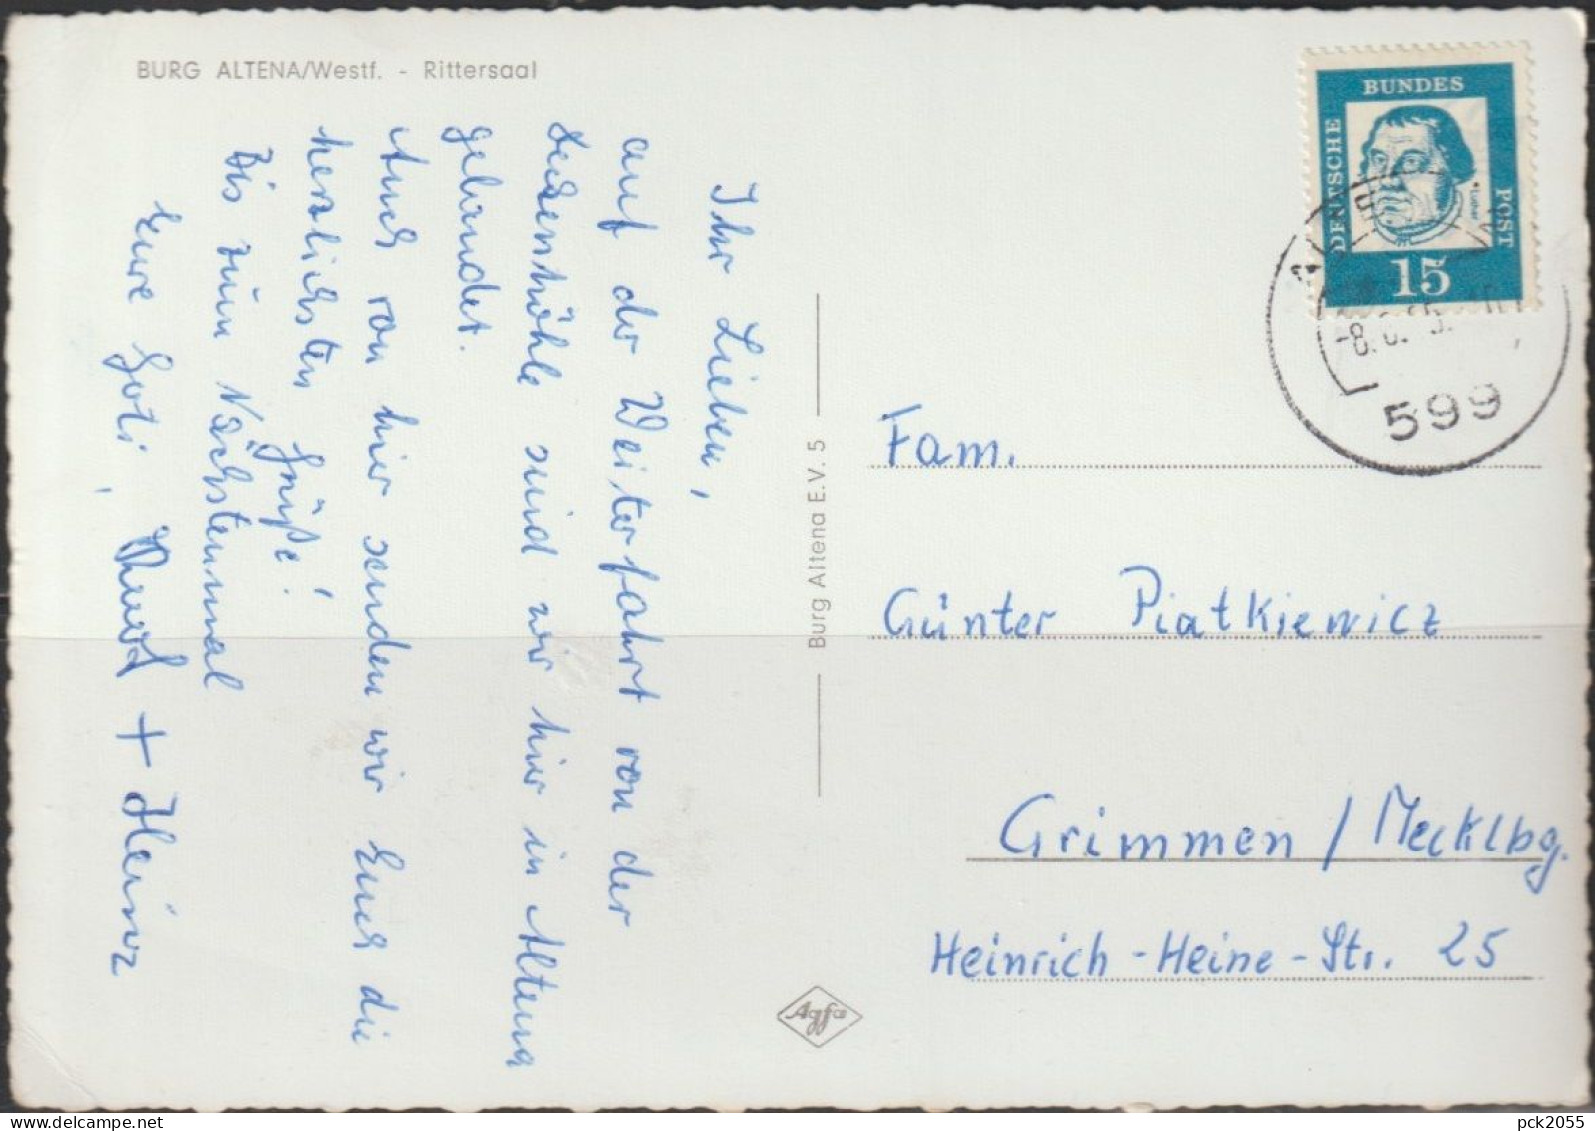 BURG ALTENA/Westf. - Rittersaal
Ihr Lieben,
auf der Weiterfahrt von der
Dechenhöhle sind wir hier in Altena
gelandet.
Auch von hier senden wir Euch die
herzlichsten Grüße!
Bis zum Nächstenmal
Eure Goti, + Heinz
Burg Altena E.V. 5
Agfa
DEUTSCHE
BUNDES
POST
Luther
15
599
Fam.
Günter Piatkiewicz
Grimmen / Mecklbg.
Heinrich-Heine-Str. 25
pck2055